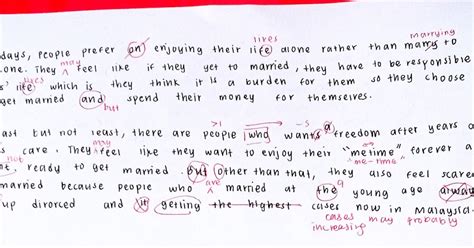 lives marrying
days, people prefer on enjoying their life alone rather than marry to
may
one. They feel like if they yet to married, they have to be responsible
lives
s' life which is they think it is a burden for them so they choose
get married and spend their money for themselves.
but
>1 -s
ast but not least, there are people who wants a freedom after years o
s care. They feel like they want to enjoy their "metime" forever a
may
not ready to get married. But Other than that, they also feel scare
"me-time"
married because people who are married at the a young age always
up divorced and it getting the highest cases now in Malaysia.
cases may probably
increasing